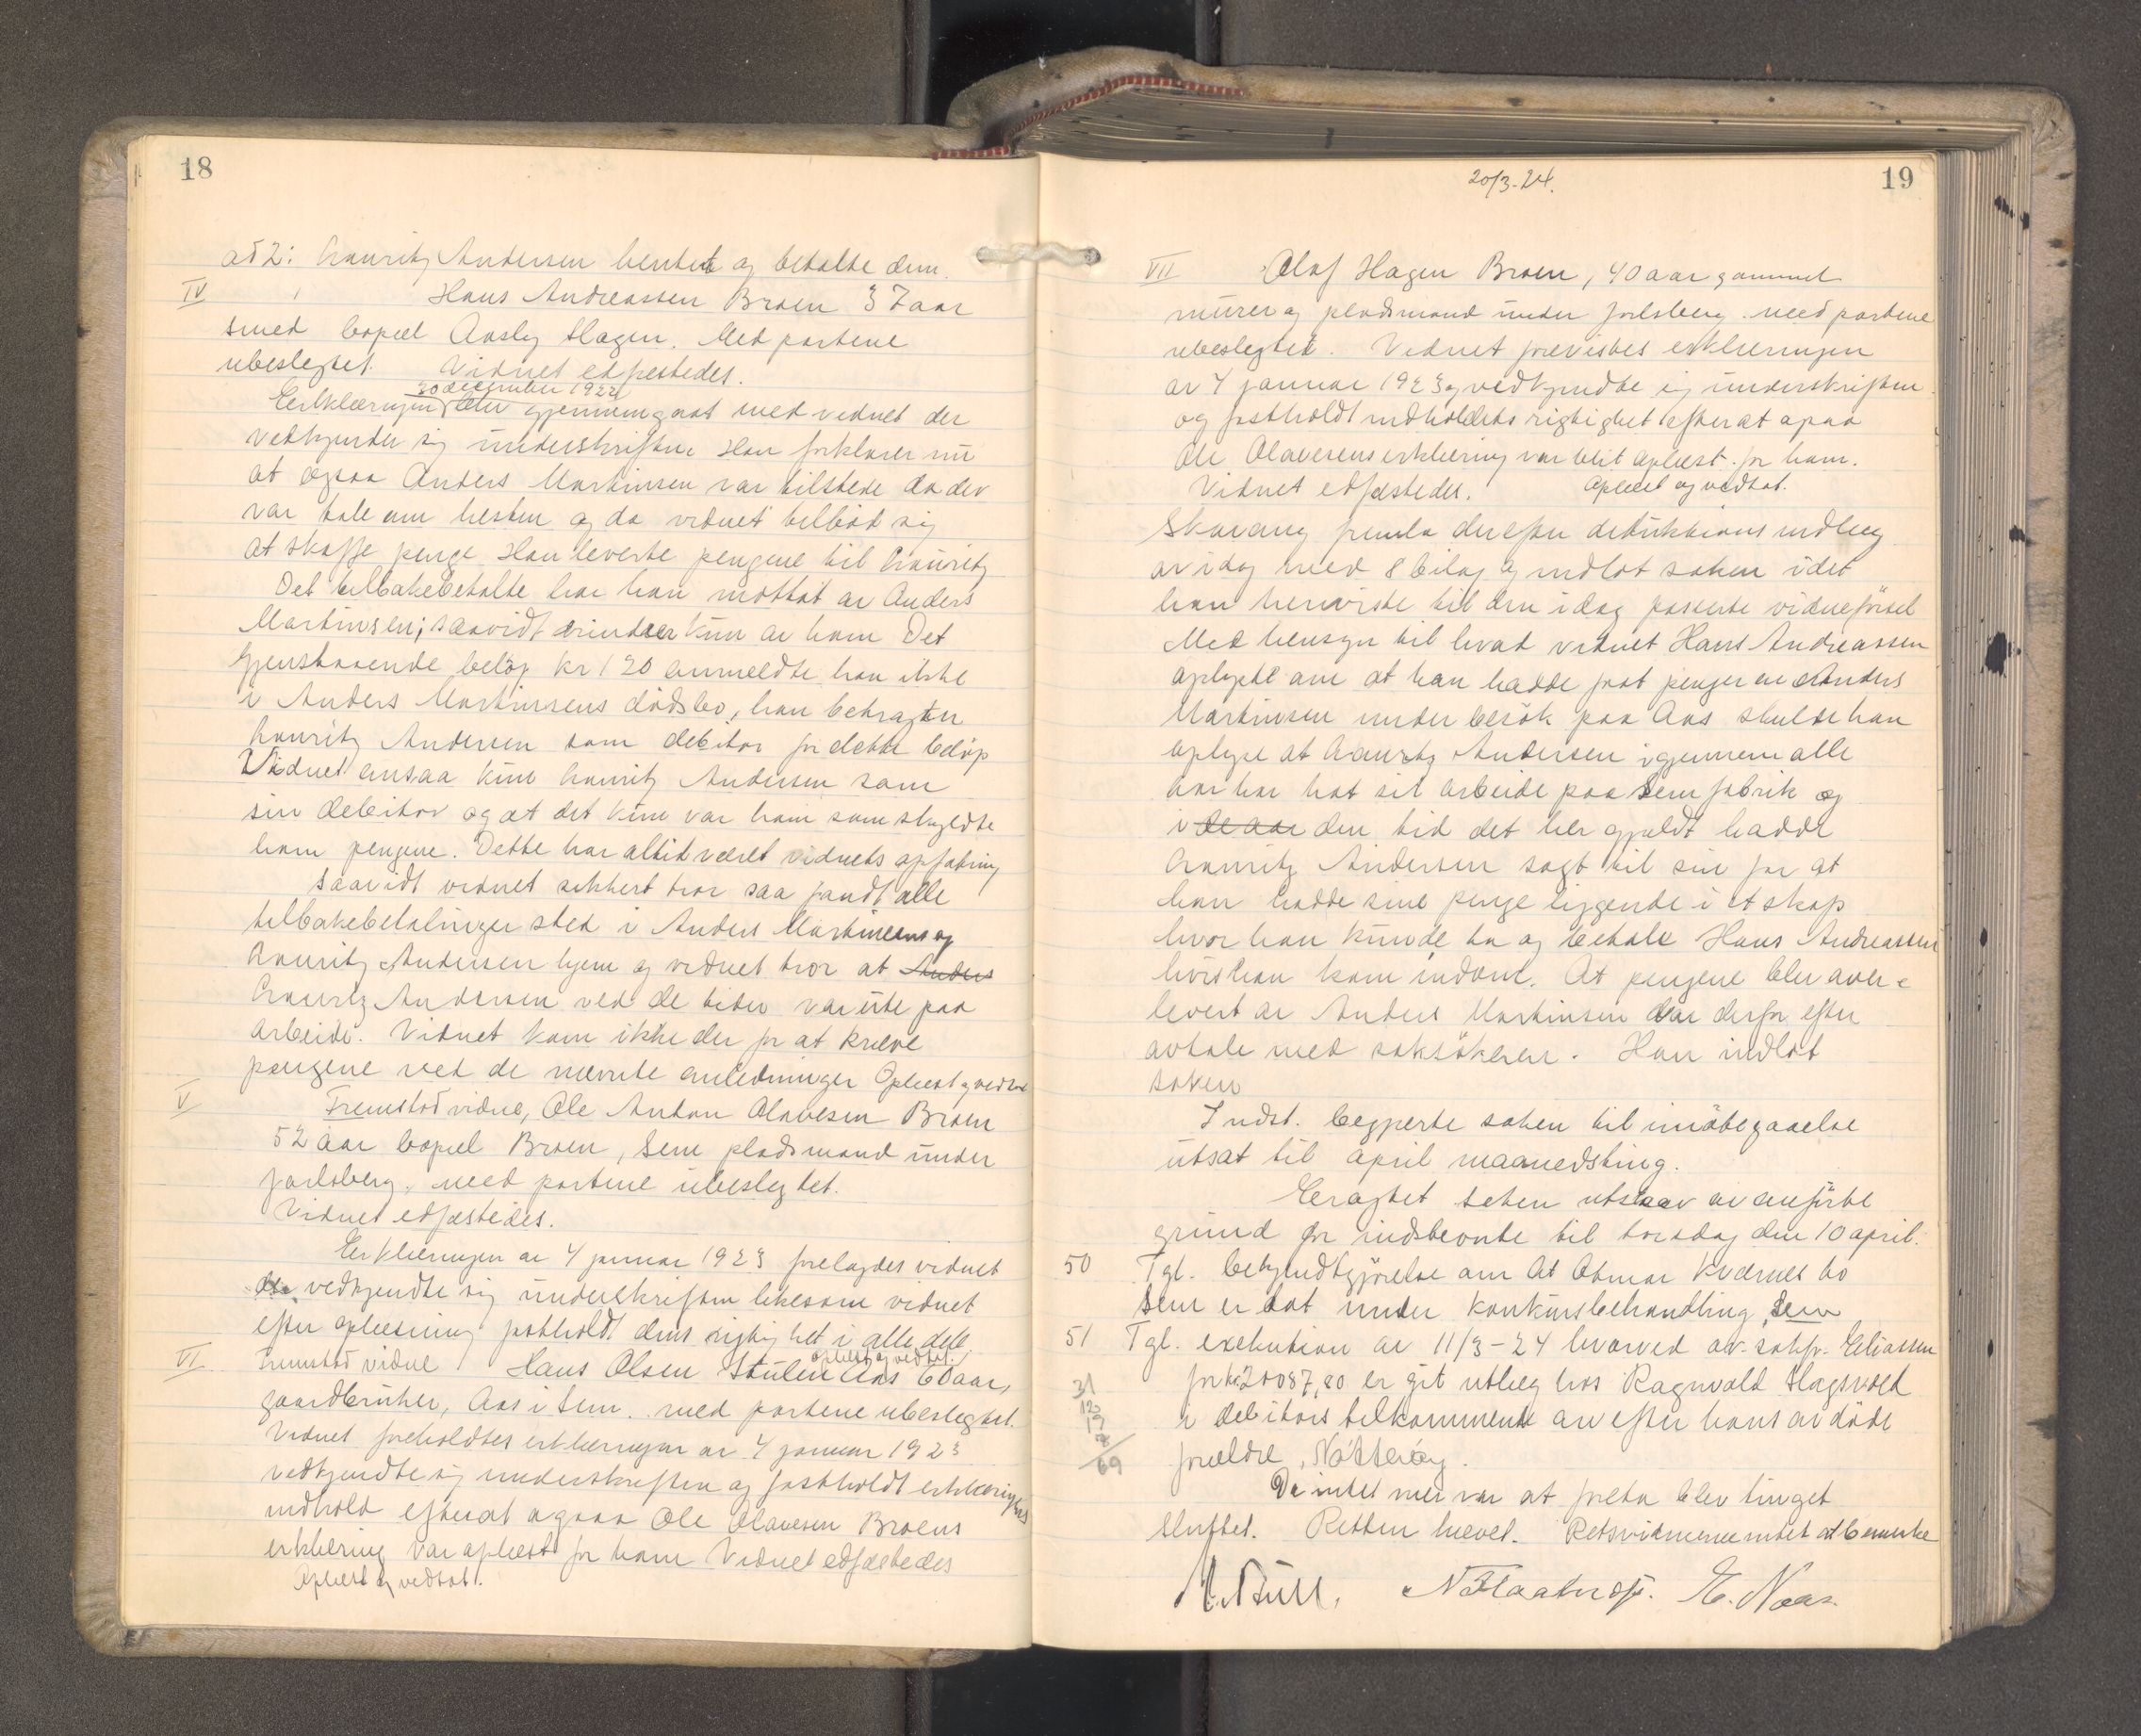 18
ad 2: Lauritz Andersen hentet og betalte dem.
IV Hans Andreassen Broen 37 aar
smed bopæl Aasly Slagen. Med partene
ubeslegtet. Vidnet edfæstedes.
30 december 1922
Erklæringen blev gjennemgaat med vidnet der
vedkjender sig underskriften. Han forklarer nu
at ogsaa Anders Martinsen var tilstede da der
var tale om hesten og da vidnet tilbød sig
at skaffe penge. Han leverte pengene til Lauritz
Det tilbakebetalte har han mottat av Anders
Martinsen; saavidt erindrer kun av ham. Det
gjenstaaende beløp kr 120 anmeldte han ikke
i Anders Martinsens dødsbo, han betragter
Lauritz Andersen som debitor for dette beløp
Vidnet ansaa kun Lauritz Andersen som
sin debitor og at det kun var ham som skyldte
ham pengene. Dette har altid været vidnets opfatning
Saavidt vidnet sikkert tror saa fandt alle
tilbakebetalinger sted i Anders Martinsens og
Lauritz Andersens hjem og vidnet tror at Anders
Lauritz Andersen ved de tider var ute paa
arbeide. Vidnet kom ikke der for at kræve
pengene ved de nævnte anledninger Oplæst og vedtat
V Fremstod vidne, Ole Anton Olavesen Broen
52 aar bopæl Broen, Sem pladsmand under
Jarlsberg, med partene ubeslegtet.
Vidnet edfæstedes.
Erklæringen av 4 januar 1923 forelagdes vidnet
der vedkjendte sig underskriften likesom vidnet
efter oplæsning fastholdt dens rigtighet i alle dele
oplæst og vedtat.
VI Fremstod vidne Hans Olsen Stulen Aas 60 aar,
gaardbruker, Aas i Sem. med partene ubeslegtet.
Vidnet foreholdtes erklæringen av 4 januar 1923
vedkjendte sig underskriften og fastholdt erklæringens
indhold efterat ogsaa Ole Olavesen Broens
erklæring var oplæst for ham Vidnet edfæstedes
Oplæst og vedtat.
20/3-24.
19
VII Olaf Hagen Broen, 40 aar gammel
murer og pladsmand under Jarlsberg. med partene
ubeslegtet. Vidnet forevistes erklæringen
av 4 januar 1923 og vedkjendte sig underskriften
og fastholdt indholdets rigtighet efterat ogsaa
Ole Olavesens erklæring var blit oplæst for ham.
Vidnet edfæstedes. Oplæst og vedtat.
Skavang fremla derefter deduktions indlæg
av idag med 8 bilag og indlot saken idet
han henviste til den idag passerte vidneførsel
Med hensyn til hvad vidnet Hans Andreassen
oplyste om at han hadde faat penger av Anders
Martinsen under besøk paa Aas skulde han
oplyse at Lauritz Andersen igjennem alle
aar har hat sit arbeide paa Sem fabrik og
i de aar den tid det her gjældt hadde
Lauritz Andersen sagt til sin far at
han hadde sine penge liggende i et skap
hvor han kunde ta og betale Hans Andreassen
hvis han kom indom. At pengene blev over-
levert av Anders Martinsen var derfor efter
avtale med saksøkeren. Han indlot
saken
Indst. begjærte saken til imøtegaaelse
utsat til april maanedsting.
Eragtet saken utsaar av anførte
grund for indstevnte til torsdag den 10 april.
50 Tgl. bekjendtgjørelse om at Otmar Kvernes bo
Sem er tat under konkursbehandling, Sem
51 Tgl. exekution av 11/3-24 hvorved ov. sakfr. Eliassen
for kr 20087,80 er git utlæg hos Ragnvald Hagsvold
i debitors tilkommende arv efter hans avdøde
forældre, Nøtterøy.
31
12
19
7
69
Da intet mer var at foreta blev tinget
sluttet. Retten hævet. Retsvidnerne intet at bemerke